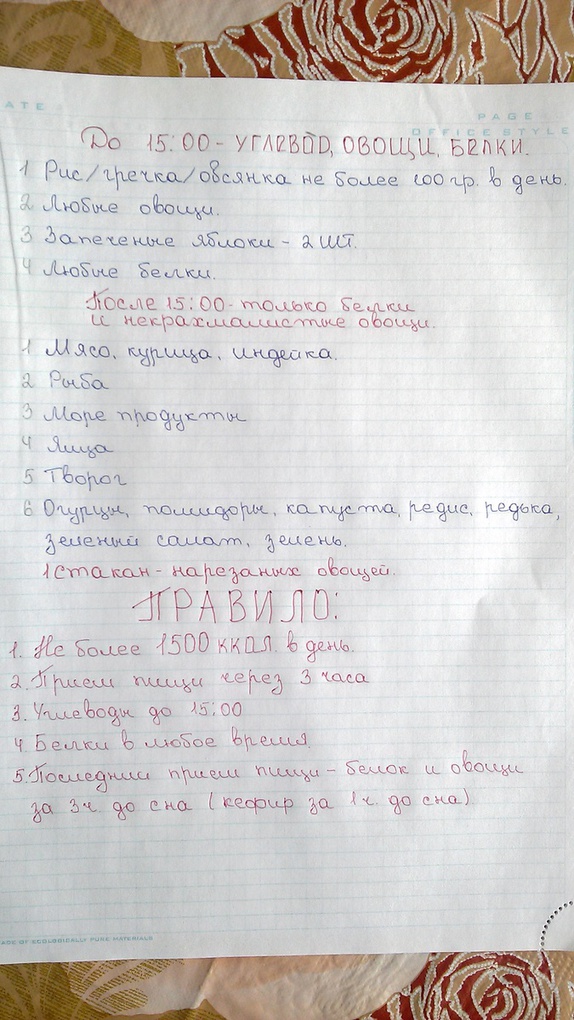 ATE
PAGE
OFFICE STYLE
До 15:00 - УГЛЕВОД, ОВОЩИ, БЕЛКИ.
1 Рис/гречка/овсянка не более 100 гр. в день.
2 Любые овощи.
3 Запеченые яблоки - 2 шт.
4 Любые белки.
После 15:00 - только белки
и некрахмалистые овощи.
1 Мясо, курица, индейка.
2 Рыба
3 Море продукты
4 Яйца
5 Творог
6 Огурцы, помидоры, капуста, редис, редька,
зеленый салат, зелень.
1 стакан - нарезаных овощей.
ПРАВИЛО:
1. Не более 1500 ккал. в день.
2. Прием пищи через 3 часа
3. Углеводы до 15:00
4. Белки в любое время.
5. Последний прием пищи - белок и овощи
за 3ч. до сна (кефир за 1ч. до сна).
ADE OF ECOLOGICALLY PURE MATERIALS